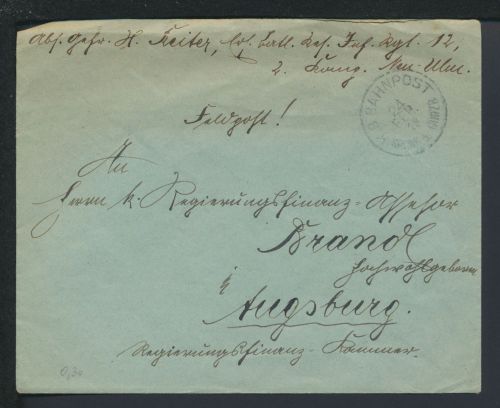 Abs. Gefr. H. Reiter, Ers. Batl. Res. Inf. Rgt. 12,
2. Komp. Neu-Ulm.
K.B. BAHNPOST
Feldpost!
An
Herrn k. Regierungsfinanz-Assessor
Brandl
Hochwohlgeboren
i/
Augsburg.
Regierungsfinanz-Kammer.
0,30